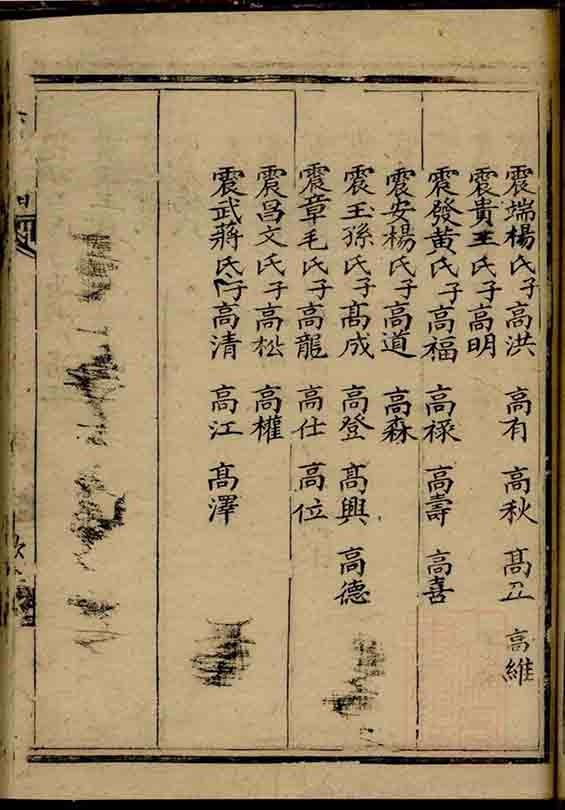 震端楊氏子高洪 高有 高秋 高丑 高維
震貴王氏子高明
震發黃氏子高福 高祿 高壽 高喜
震安楊氏子高道 高森
震玉孫氏子高成 高登 高興 高德
震章毛氏子高龍 高仕 高位
震昌文氏子高松 高權
震武蔣氏子高清 高江 高澤